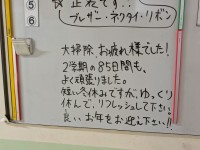 ⑤
⑥
正装です!!
ブレザー・ネクタイ・リボン
大掃除、お疲れ様でした!
2学期の85日間も、
よく頑張りました。
短い冬休みですが、ゆっくり
休んで、リフレッシュして下さい。
良いお年をお迎え下さい!!